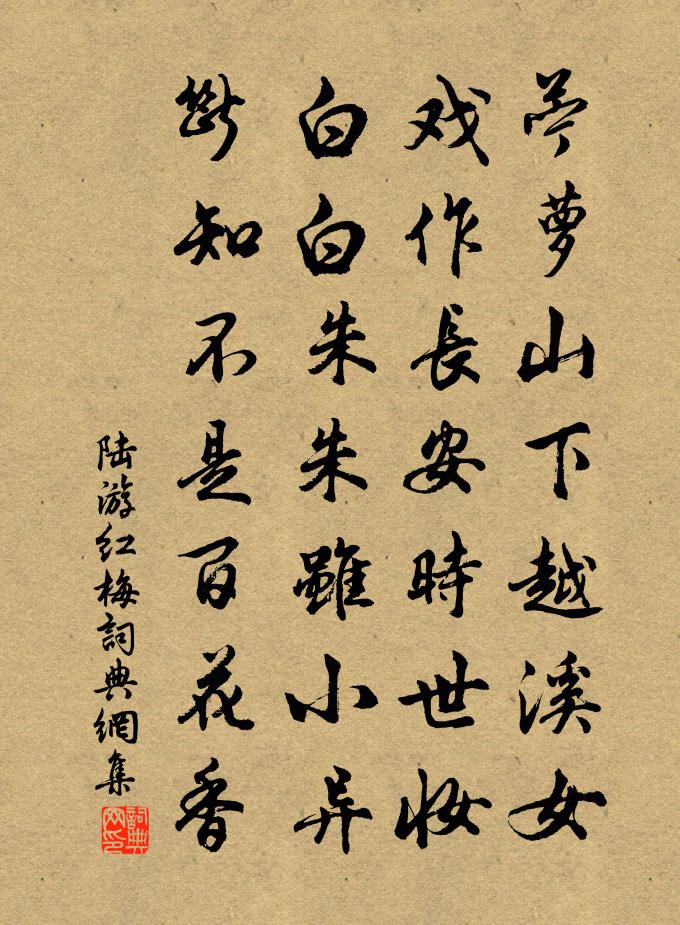 苎萝山下越溪女
戏作長安時世妆
白白朱朱雖小异
斷知不是百花香
陆游红梅詞典網集
詞典网印